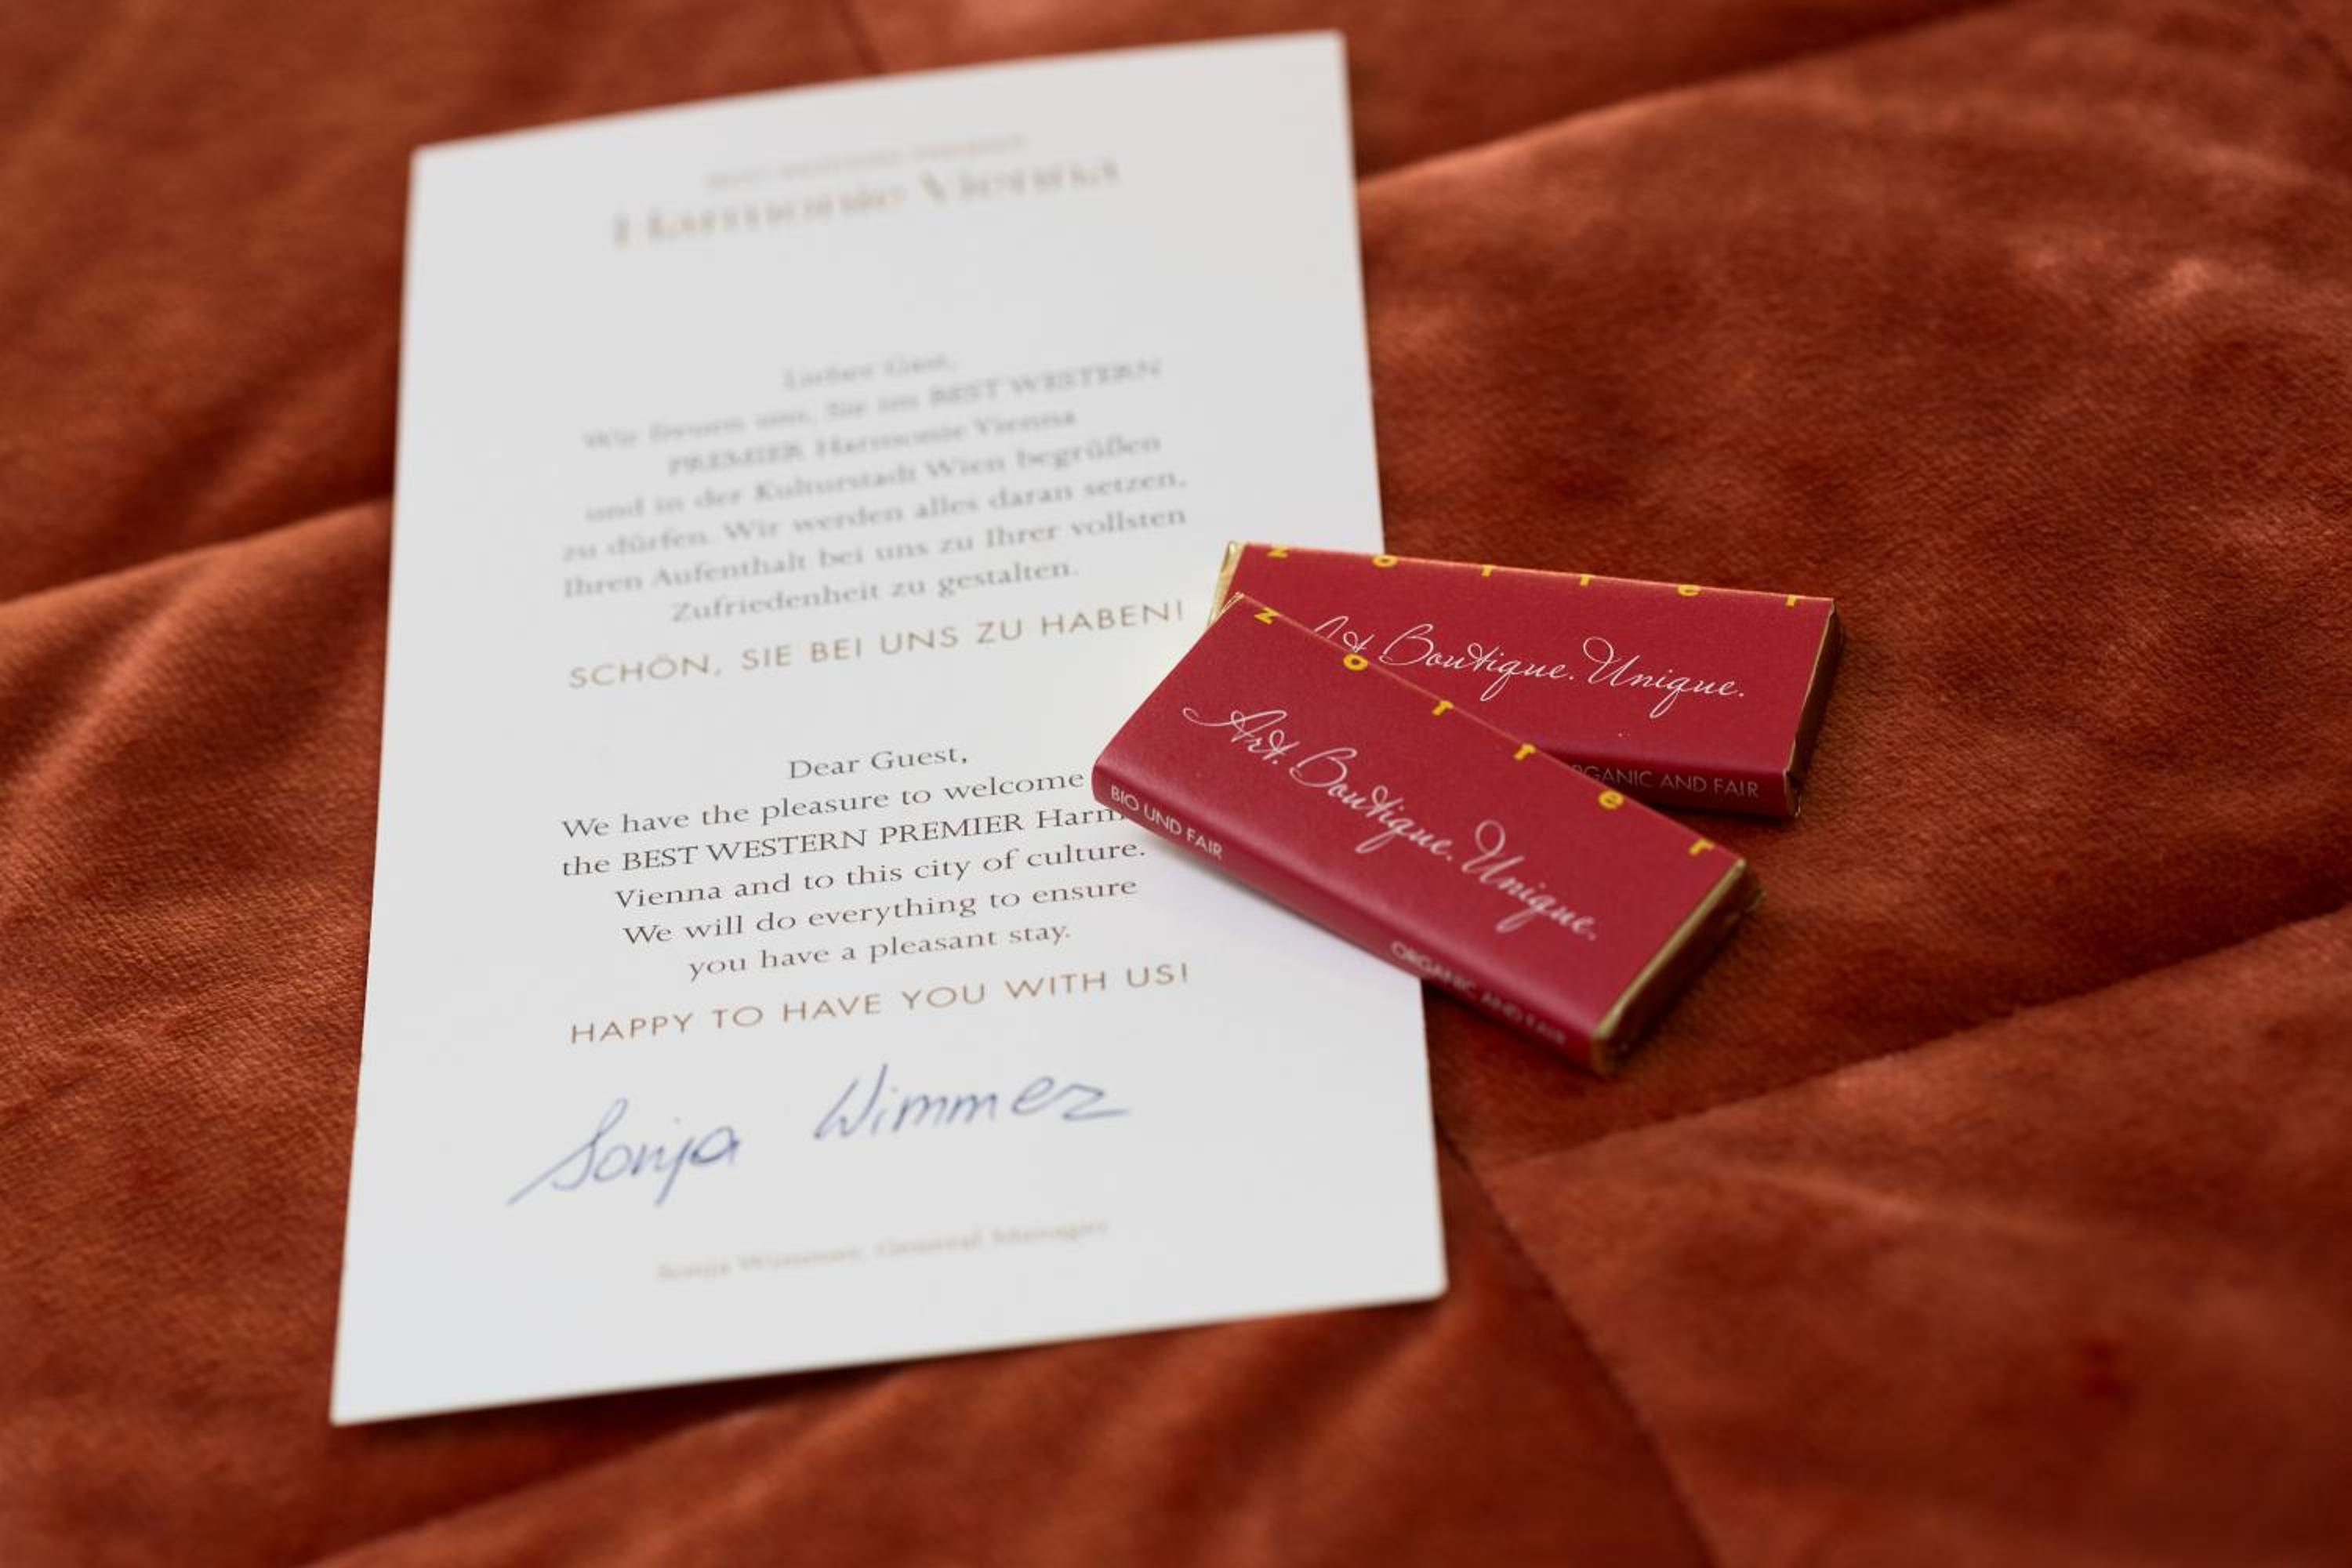 BEST WESTERN PREMIER
Harmonie Vienna
Lieber Gast,
Wir freuen uns, Sie im BEST WESTERN
PREMIER Harmonie Vienna
und in der Kulturstadt Wien begrüßen
zu dürfen. Wir werden alles daran setzen,
Ihren Aufenthalt bei uns zu Ihrer vollsten
Zufriedenheit zu gestalten.
SCHÖN, SIE BEI UNS ZU HABEN!
Dear Guest,
We have the pleasure to welcome
the BEST WESTERN PREMIER Harm
Vienna and to this city of culture.
We will do everything to ensure
you have a pleasant stay.
HAPPY TO HAVE YOU WITH US!
Sonja Wimmer
Sonja Wimmer, General Manager
zotter
Boutique. Unique.
ORGANIC AND FAIR
zotter
Art. Boutique. Unique.
BIO UND FAIR
ORGANIC AND FAIR